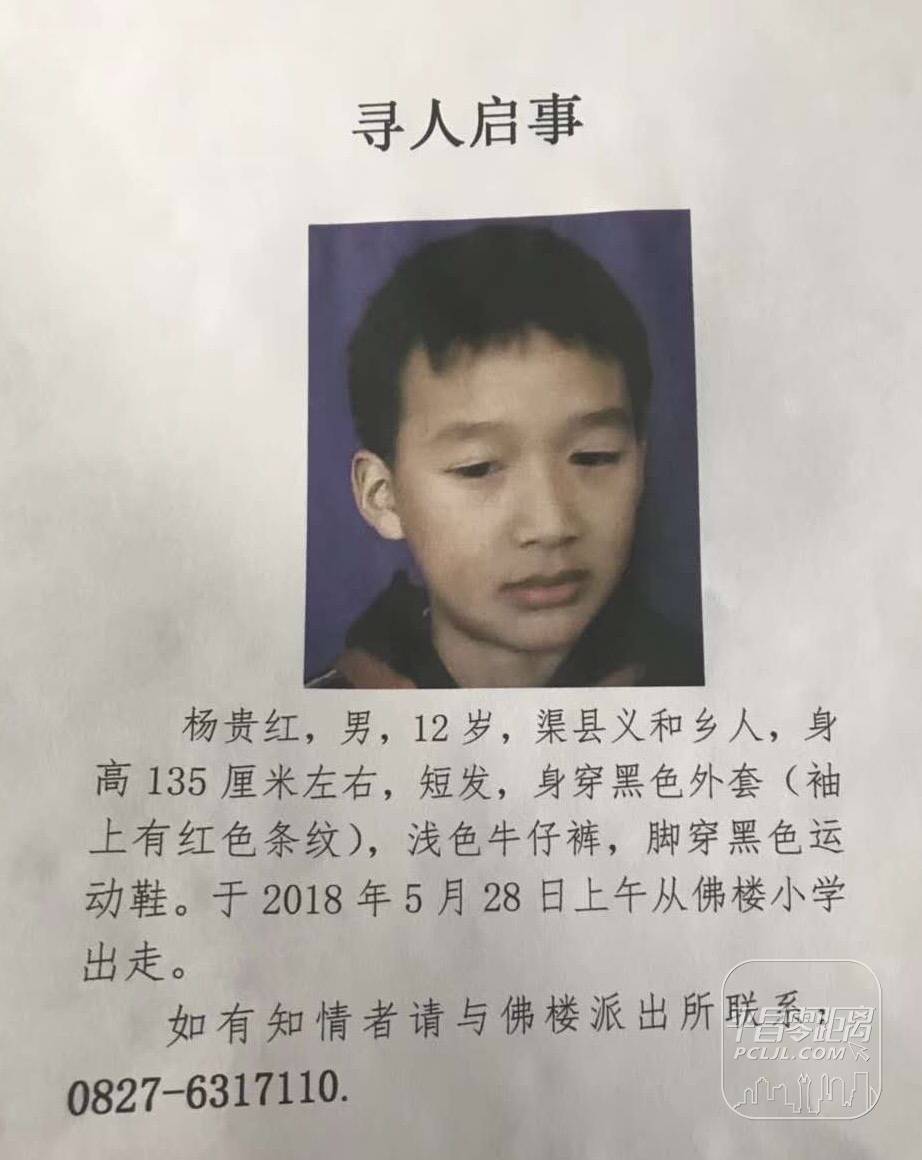 寻人启事
杨贵红，男，12岁，渠县义和乡人，身
高135厘米左右，短发，身穿黑色外套（袖
上有红色条纹），浅色牛仔裤，脚穿黑色运
动鞋。于2018年5月28日上午从佛楼小学
出走。
如有知情者请与佛楼派出所联系：
0827-6317110.
平昌零距离
PCLJL.COM